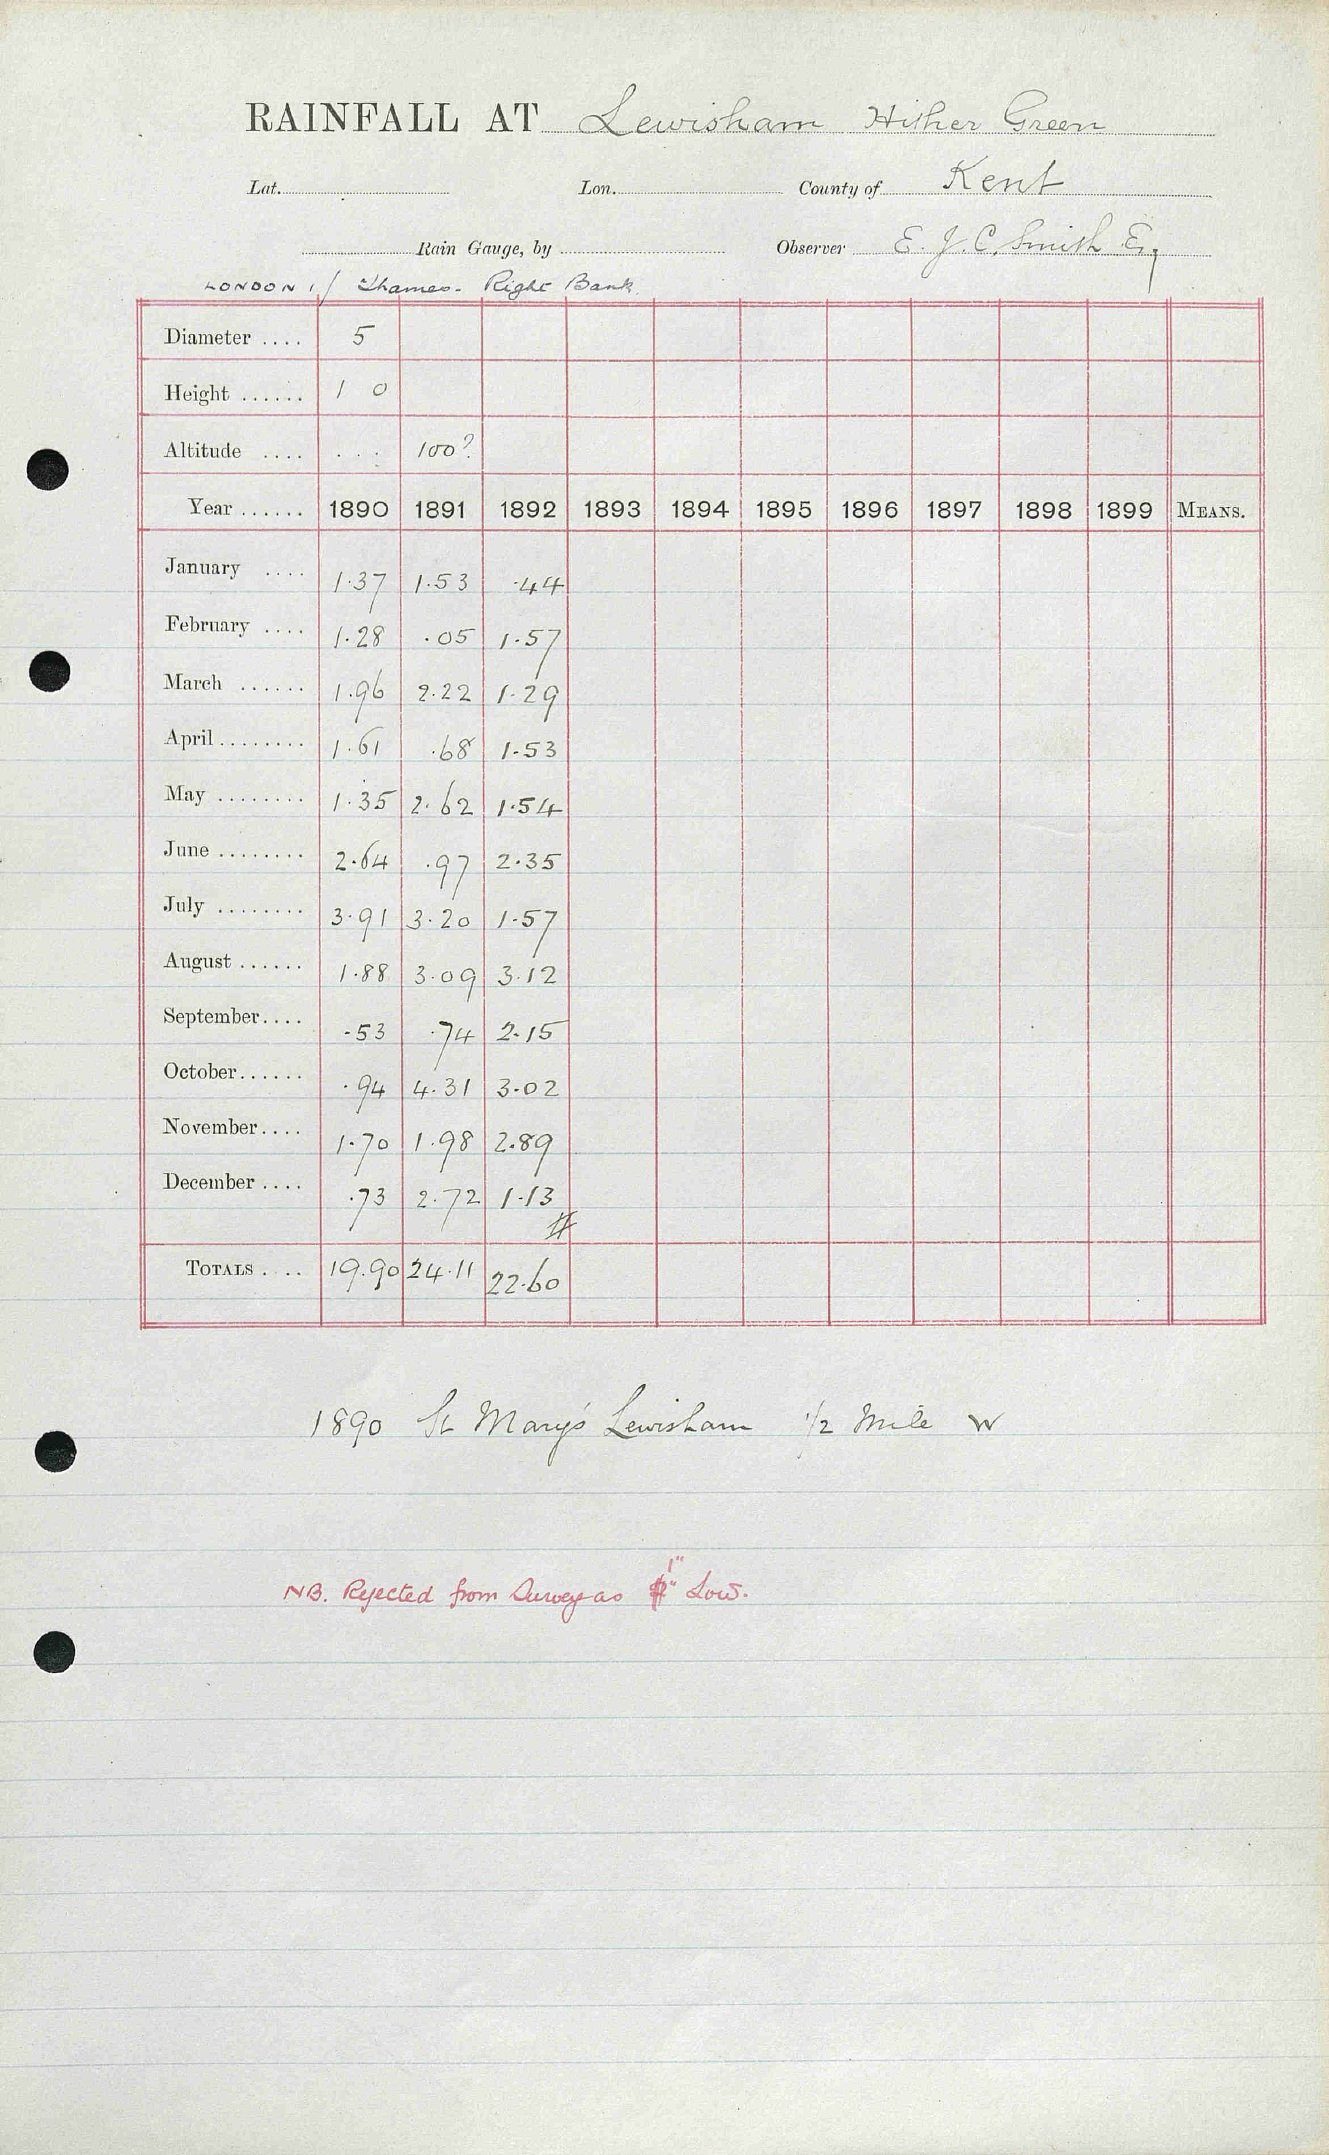 RAINFALL AT Lewisham Hither Green
Lat. Lon. County of Kent
Rain Gauge, by Observer E. J. C. Smith Esq
LONDON 1/ Thames. Right Bank.
Diameter .... 5
Height ...... 1 0
Altitude .... . . . 100?
Year ...... 1890 1891 1892 1893 1894 1895 1896 1897 1898 1899 MEANS.
January .... 1.37 1.53 .44
February .... 1.28 .05 1.57
March ...... 1.96 2.22 1.29
April ........ 1.61 .68 1.53
May ........ 1.35 2.62 1.54
June ........ 2.64 .97 2.35
July ........ 3.91 3.20 1.57
August ...... 1.88 3.09 3.12
September.... .53 .74 2.15
October...... .94 4.31 3.02
November.... 1.70 1.98 2.89
December .... .73 2.72 1.13
#
TOTALS .... 19.90 24.11 22.60
1890 St Mary's Lewisham 1/2 Mile W
1"
NB. Rejected from Survey as " Low.